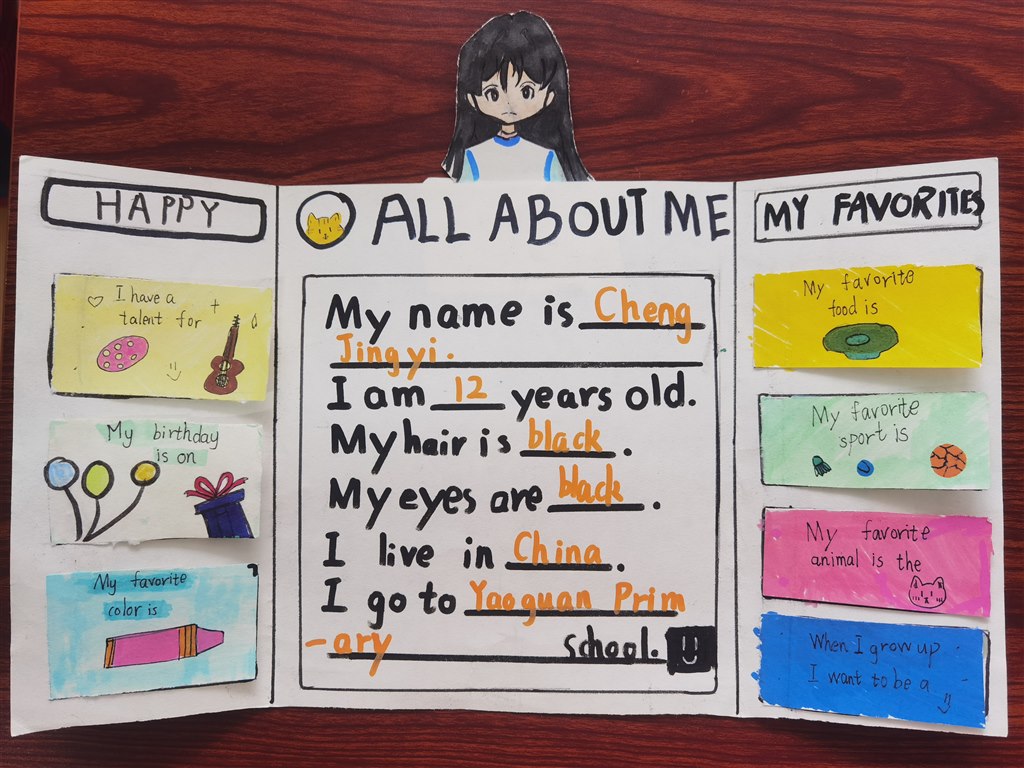 HAPPY
I have a
talent for
My birthday
is on
My favorite
color is
ALL ABOUT ME
My name is Cheng
Jingyi.
I am 12 years old.
My hair is black.
My eyes are black.
I live in China.
I go to Yaoguan Prim
-ary school.
MY FAVORITES
My favorite
food is
My favorite
sport is
My favorite
animal is the
When I grow up
I want to be a